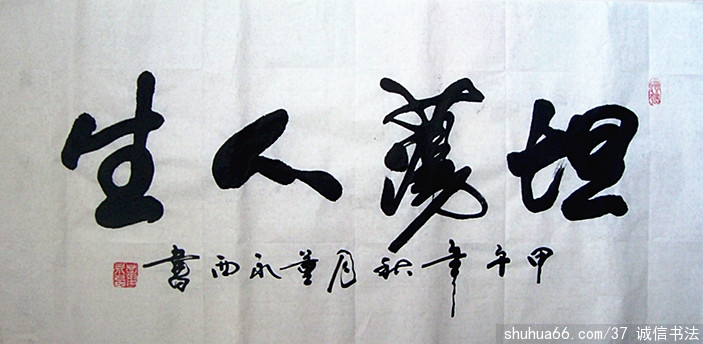 坦蕩人生
甲午年秋月董永西書
shuhua66.com/37 诚信书法